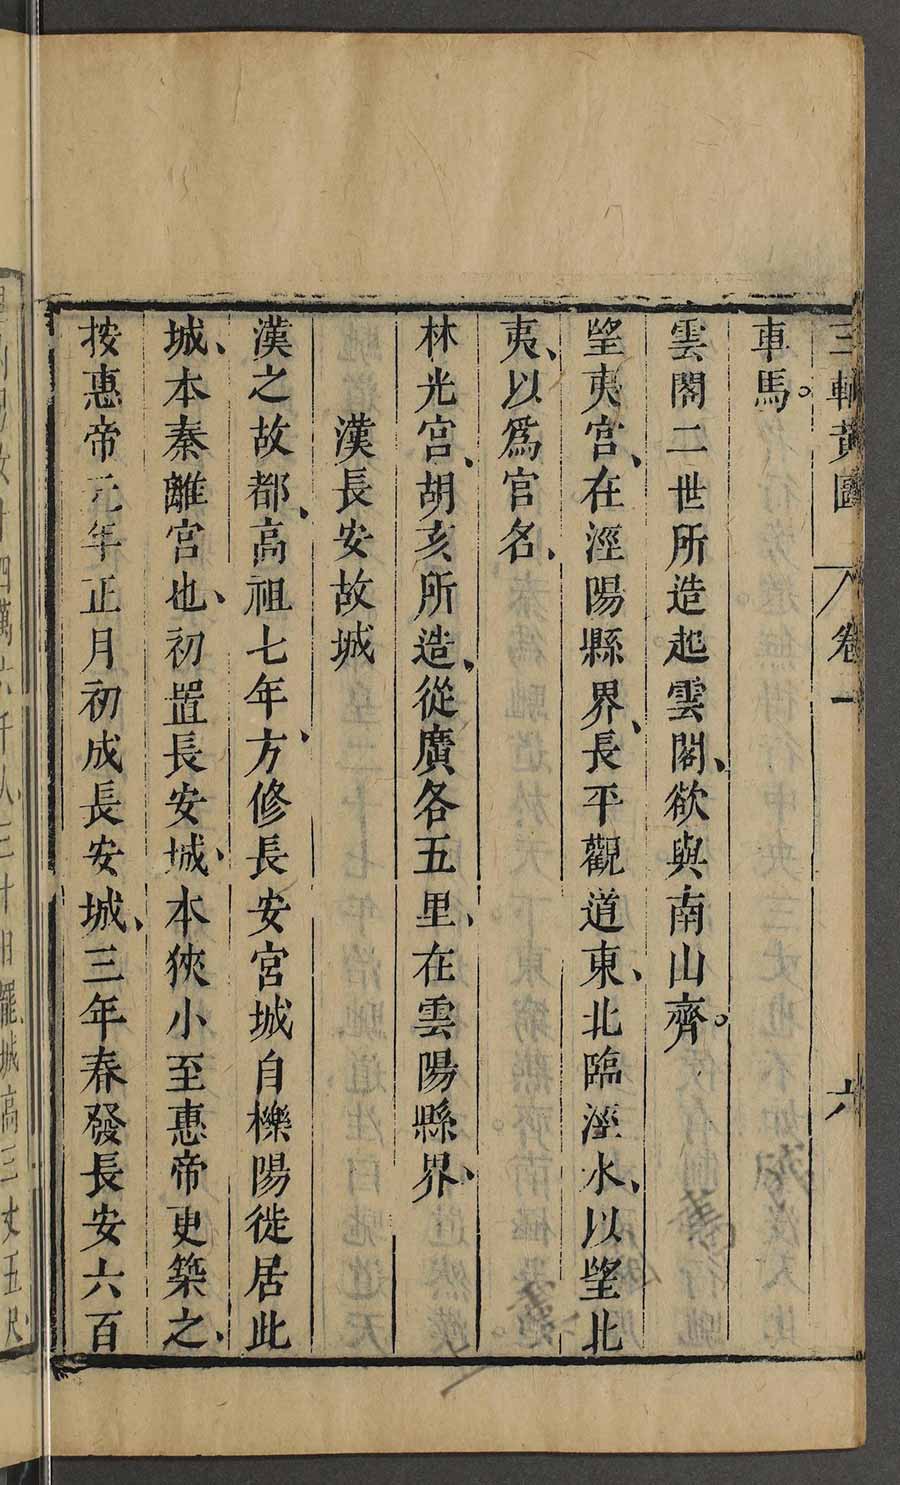 三輔黃圖 卷一 六
車馬。
雲閣二世所造起雲閣、欲與南山齊。
望夷宮、在涇陽縣界、長平觀道東、北臨涇水、以望北
夷、以爲官名、
林光宮、胡亥所造、從廣各五里、在雲陽縣界、
漢長安故城
漢之故都、高祖七年、方修長安宮城自櫟陽徙居此
城、本秦離宮也、初置長安城、本狹小至惠帝更築之、
按惠帝元年正月初成長安城、三年春發長安六百